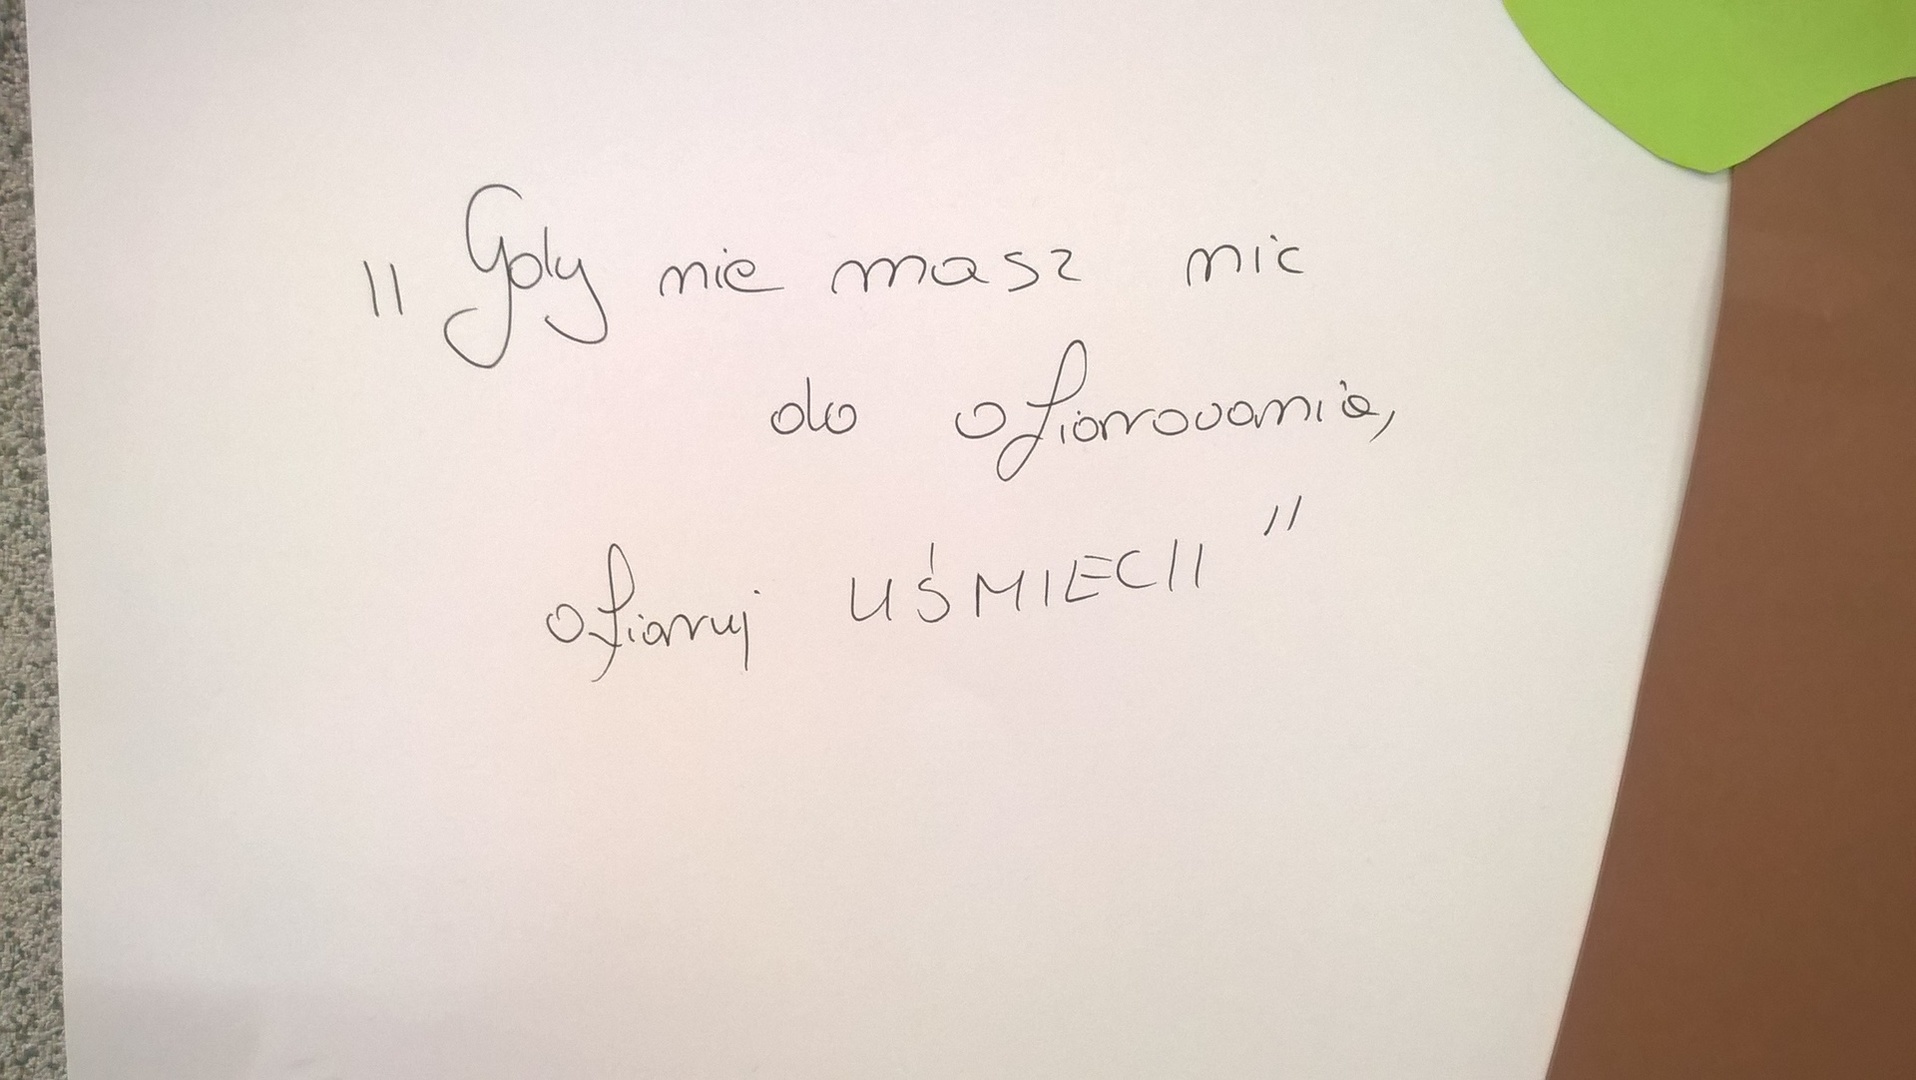 "Gdy nie masz nic
do ofiarowania,
ofiaruj UŚMIECH"